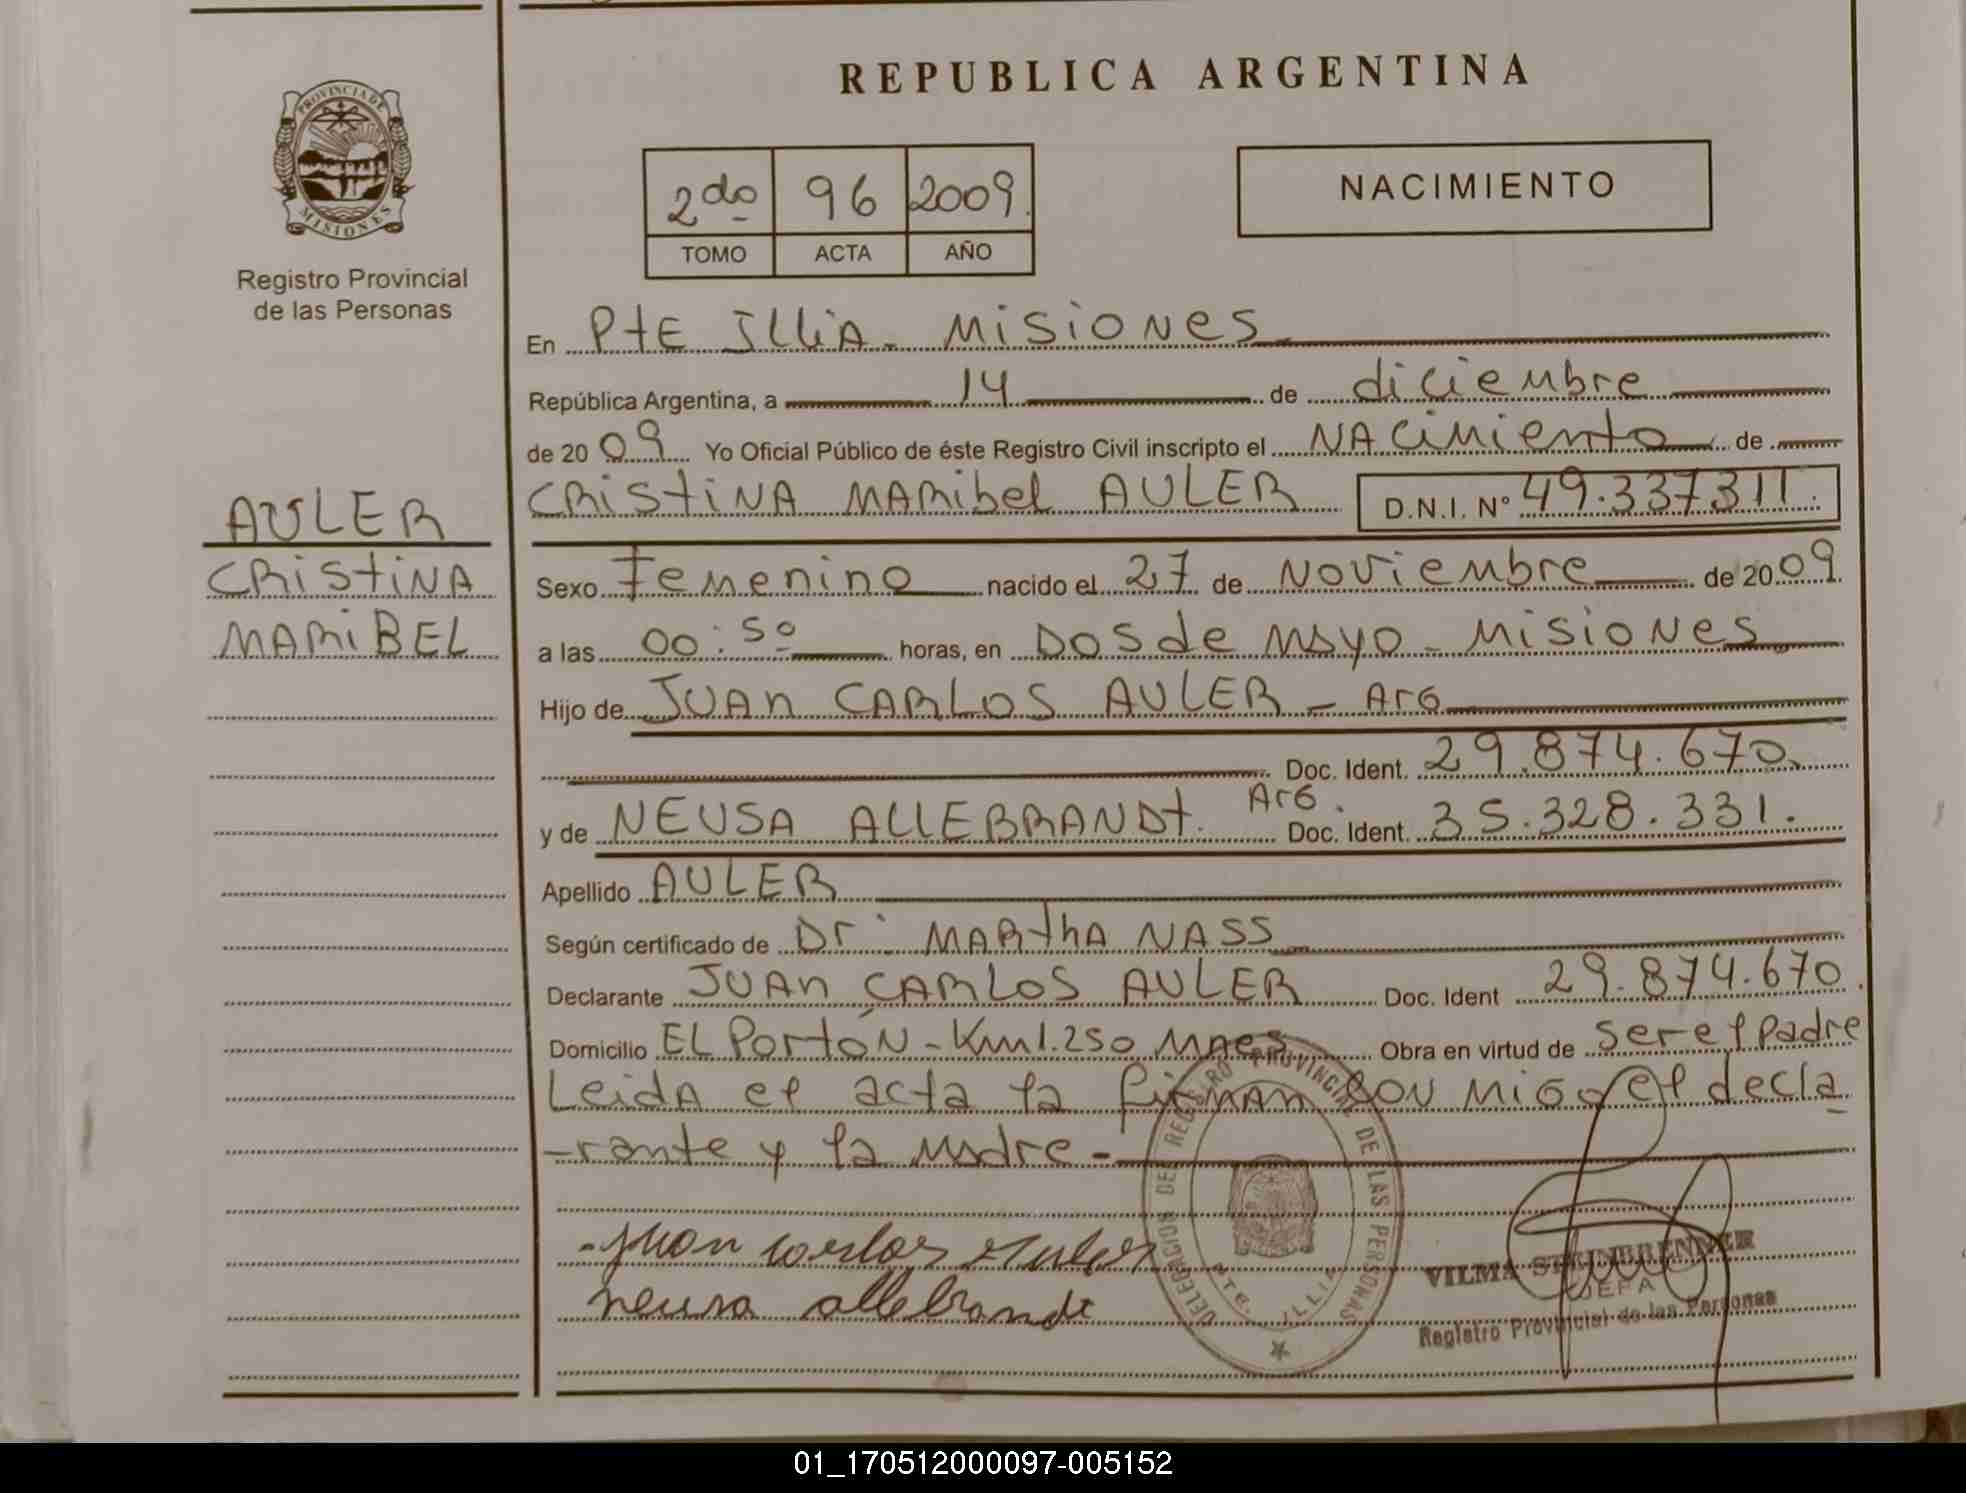 REPUBLICA ARGENTINA
PROVINCIA DE
MISIONES
Registro Provincial
de las Personas
2do 96 2009.
TOMO ACTA AÑO
NACIMIENTO
En Pte Illia - Misiones
República Argentina, a 14 de diciembre
de 2009 Yo Oficial Público de éste Registro Civil inscripto el NAcimiento de
CRistiNA MARibel AULER D.N.I. Nº 49.337311.
AULER
CRistiNA
MARiBEL
Sexo Femenino nacido el 27 de Noviembre de 2009
a las 00:50 horas, en Dos de Mayo - Misiones
Hijo de JUAN CARLOS AULER - Arg
Doc. Ident. 29.874.670.
y de NEUSA ALLEBRANDt. Arg. Doc. Ident. 35.328.331.
Apellido AULER
Según certificado de Dr: MARthA NASS
Declarante JUAN CARLOS AULER Doc. Ident 29.874.670.
Domicilio EL PortóN - Km 1.250 Mnes Obra en virtud de ser el padre
LeidA el acta la firman CON migo el decla
-rante y la madre -
Juan carlos Auler
neusa allebrandt
DELEGACION DEL REGISTRO PROVINCIAL DE LAS PERSONAS
Pte. ILLIA
VILMA STEINBRENNER
JEFA
Registro Provincial de las Personas
01_170512000097-005152